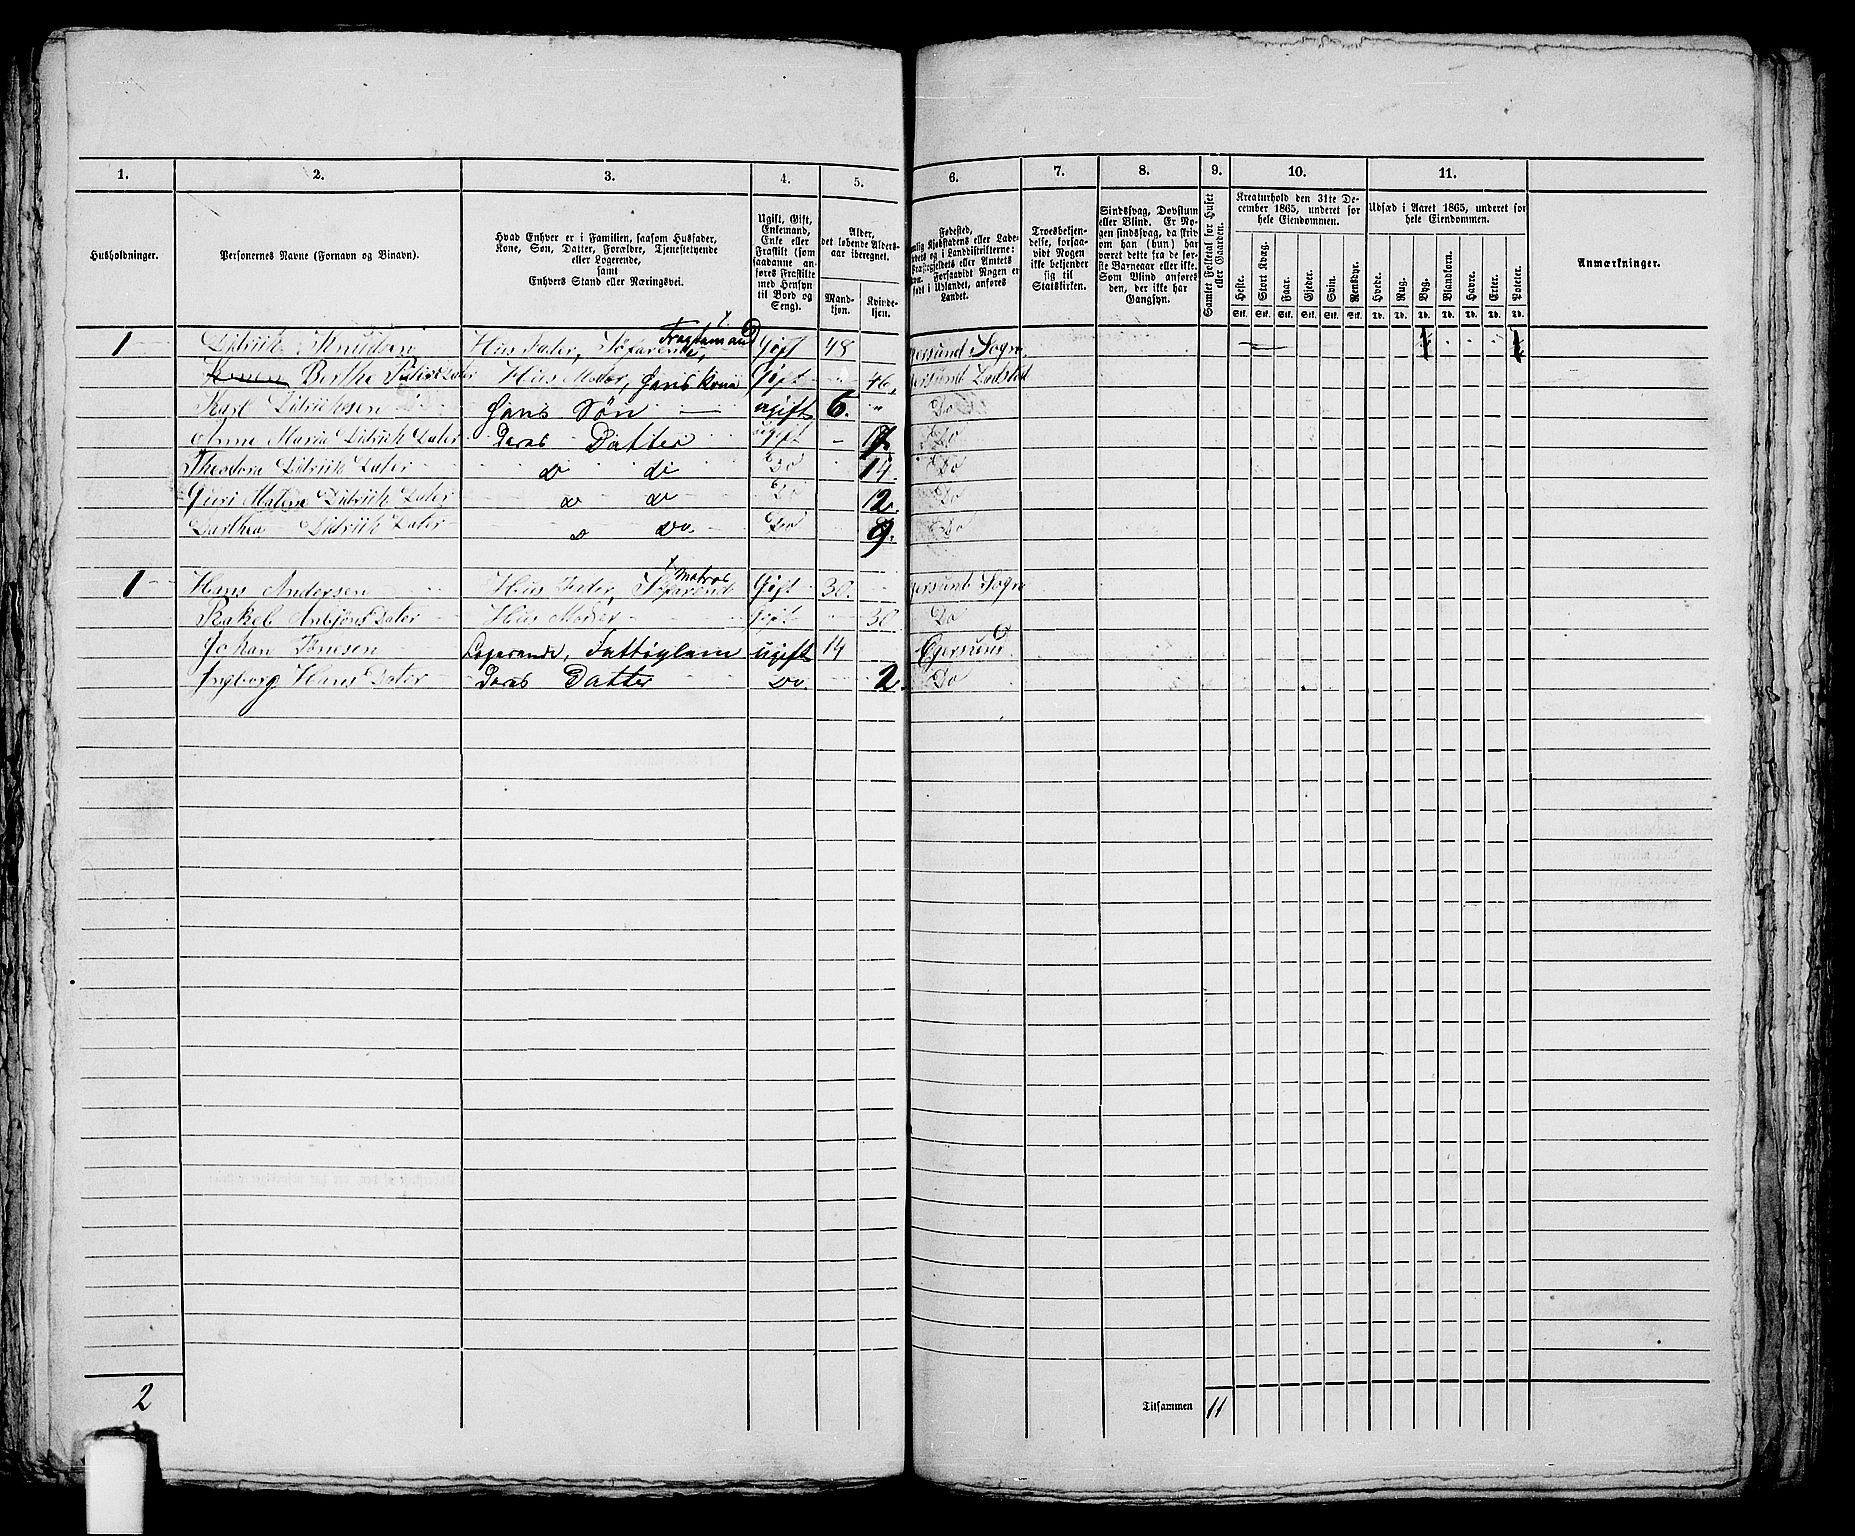 1. 2. 3. 4. 5. 6. 7. 8. 9. 10. 11.
Husholdninger.
Personernes Navne (Fornavn og Binavn).
Hvad Enhver er i Familien, saasom Husfader,
Kone, Søn, Datter, Forældre, Tjenestetyende
eller Logerende,
samt
Enhvers Stand eller Næringsvei.
Ugift, Gift,
Enkemand,
Enke eller
Fraskilt (som
saadanne an-
føres Fraskilte
med Hensyn
til Bord og
Seng).
Alder,
det løbende Alders-
aar iberegnet.
Mand-
kjøn.
Kvinde-
kjøn.
Fødested,
Kjøbstadens eller Lade-
og i Landdistrikterne:
Præstegjeldets eller Amtets
Forsaavidt Nogen er
født i Udlandet, anføres
Landet.
Troesbekjen-
delse, forsaa-
vidt Nogen
ikke bekjender
sig til
Statskirken.
Sindssvag, Døvstum
eller Blind. Er No-
gen sindssvag, da skriv
om han (hun) har
været dette fra de før-
ste Barneaar eller ikke.
Som Blind anføres
den, der ikke har
Gangsyn.
Samlet Folketal for Huset
eller Gaarden.
Kreaturhold den 31te De-
cember 1865, underet for
hele Eiendommen.
Heste. Stort Kvæg. Faar. Gjeder. Svin. Rensdyr.
Stk. Stk. Stk. Stk. Stk. Stk.
Udsæd i Aaret 1865, underet for
hele Eiendommen.
Hvede. Rug. Byg. Blandkorn. Havre. Erter. Poteter.
Td. Td. Td. Td. Td. Td. Td.
Anmærkninger.
1 Didrik Knudsen Hus Fader, Søfarende, Fragtemand Gift 48 gersund Sogn
Konen Berthe Datter Hus Moder, hans Kone Gift 46 gersund Ladsted
Karl Didriksen hans Søn ugift 6. " Do
Anne Maria Didrik Dater Deres Datter ugift - 17. Do
Theodora Didrik Dater do do Do 14 Do
Guri Malene Didrik Dater do do Do 12. Do
Darthea Didrik Dater do Do. Do 9. Do
1 Hans Andersen Hus Fader, Søfarend Matros Gift 30. gersund Sogn
Rakel Dater Hus Moder Gift 30 Do
Johan Tønesen Logerende, Fattiglem ugift 14 Egersund
Ingborg Hans Dater Deres Datter Do. 2. Do
2
Tilsammen 11